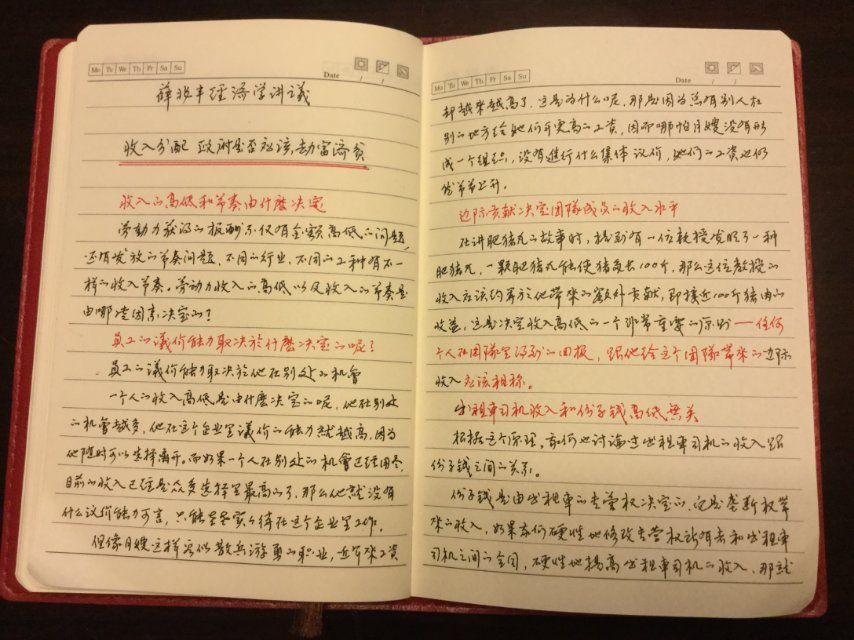 Mo Tu We Th Fr Sa Su
Date / /
薛兆丰经济学讲义
收入分配 政府是否应该劫富濟貧
收入的高低和节奏由什麽决定
劳动力获得的报酬不仅有金额高低的问题,
还有发放的节奏问题,不同的行业,不同的工种有不一
样的收入节奏。劳动力收入的高低以及收入的节奏是
由哪些因素决定的?
员工的議价能力取决於什麽决定的呢?
员工的議价能力取决於他在别处的机會
一个人的收入高低是由什麽决定的呢,他在别处
的机會越多,他在这个企业里議价的能力就越高,因为
他随时可以选择离开。而如果一个人在别处的机會已经困尽,
目前的收入已经是众多选择里最高的了,那么他就没有
什么议价能力可言,只能老老实实待在这个企业里工作。
但像月嫂这样看似散兵游勇的职业,近年来工资
Mo Tu We Th Fr Sa Su
Date / /
却越来越高了,这是为什么呢,那是因为总有别人在
别的地方给她们开更高的工资,因而哪怕月嫂没有形
成一个组织,没有进行什么集体议价,她们的工资也仍
然节节上升。
边际贡献决定团隊成员的收入水平
在讲肥猪丸的故事时,提到有一位教授发明了一种
肥猪丸,一颗肥猪丸能使猪重出100斤,那么这位教授的
收入应该约等於他带来的额外贡献,即接近100斤猪肉的
收益,这是决定收入高低的一个非常重要的原则——任何
个人在团隊里得到的回报,跟他给这个团隊带来的边际
收入应该相称。
出租車司机收入和份子钱高低無关
根据这个原理,我们也讨論过出租車司机的收入跟
份子钱之间的关系。
份子钱是由出租車的专营权决定的,它是垄断权带
来的收入,如果我们硬性地修改专营权所有者和出租車
司机之间的合同,硬性地提高出租車司机的收入,那就